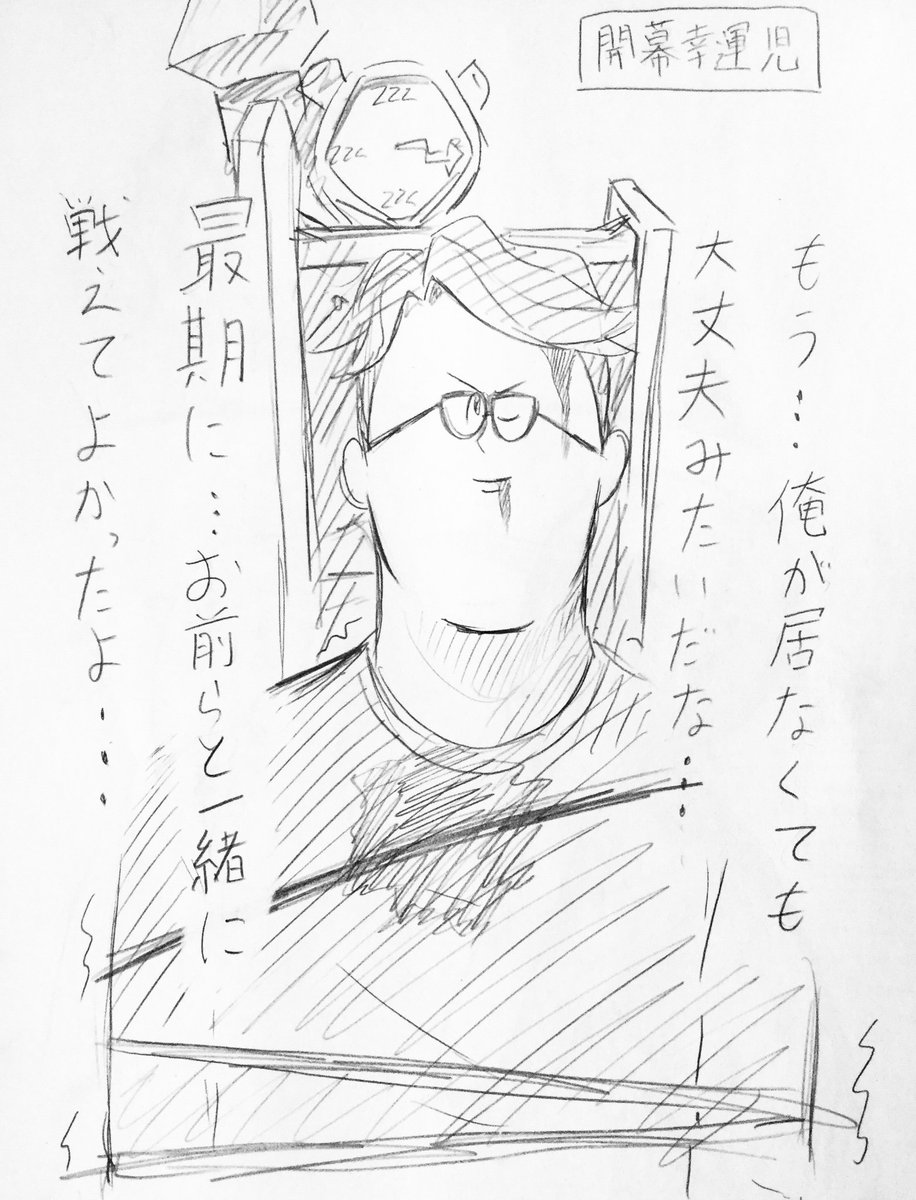 開幕幸運児
もう…俺が居なくても
大丈夫みたいだな…
最期に…お前らと一緒に
戦えてよかったよ…
222
222
222